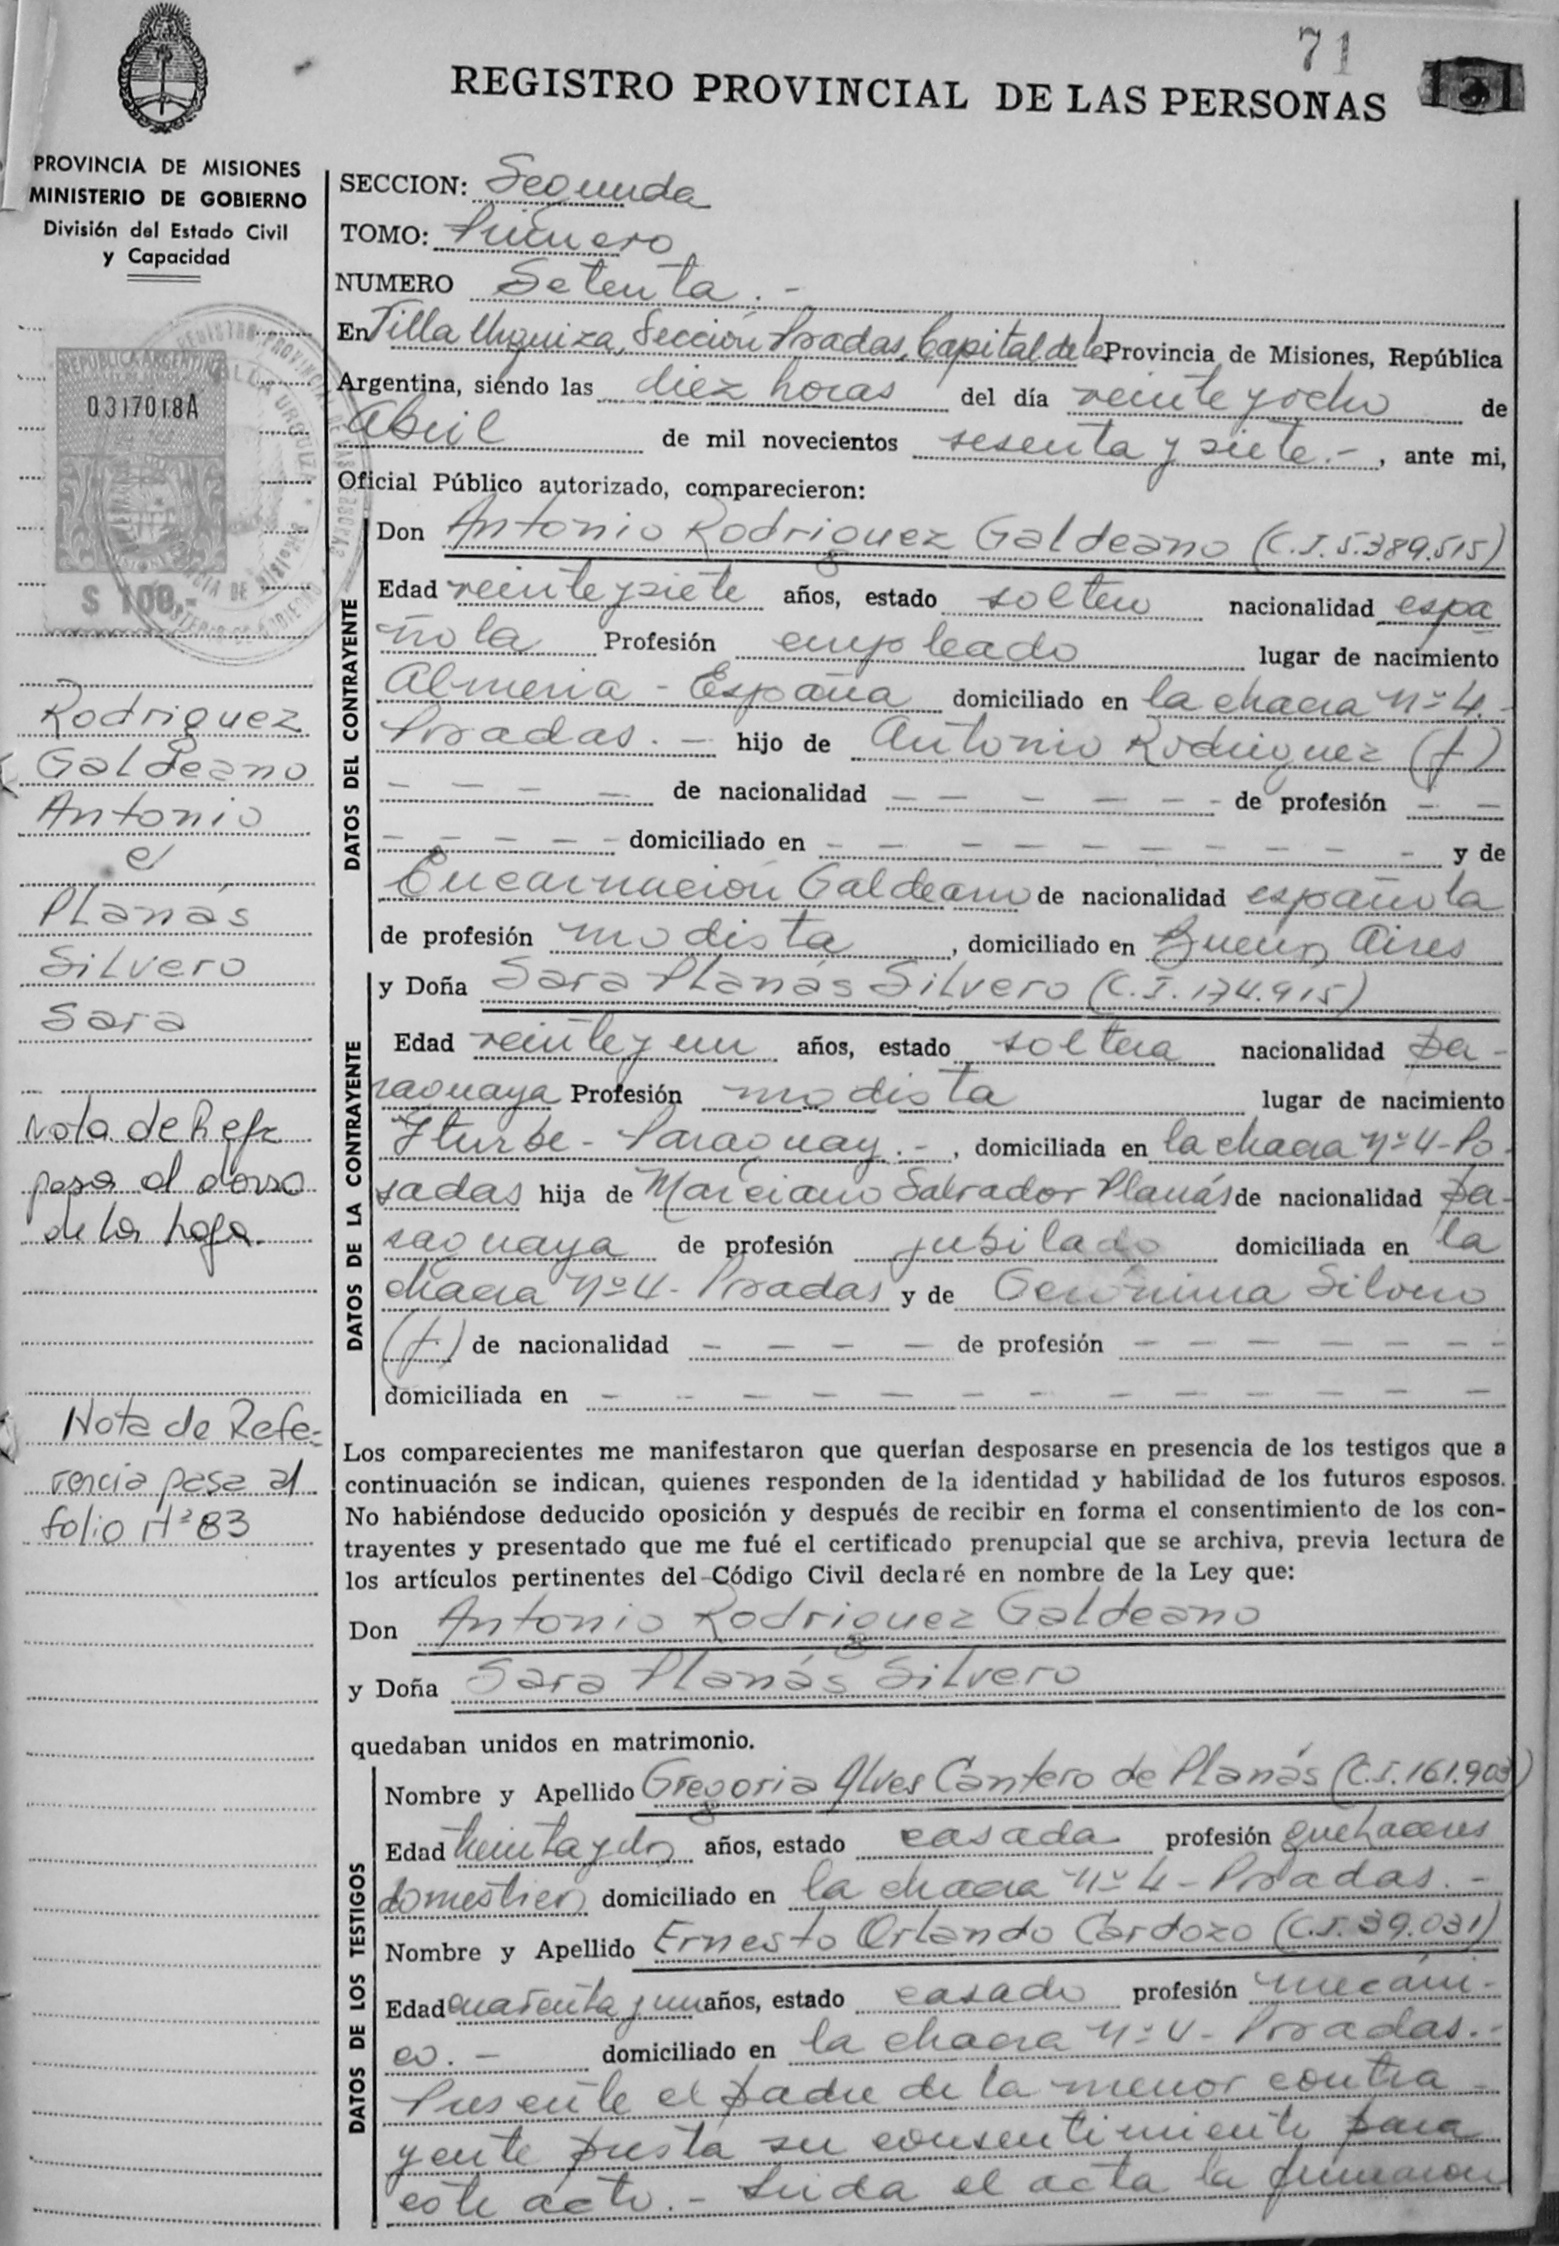 71
REGISTRO PROVINCIAL DE LAS PERSONAS
PROVINCIA DE MISIONES
MINISTERIO DE GOBIERNO
División del Estado Civil
y Capacidad
REPUBLICA ARGENTINA
0317018A
$ 100,-
Rodriguez
Galdeano
Antonio
e/
Planás
Silvero
Sara
Nota de Refe
pasa al dorso
de la hoja.
Nota de Refe-
rencia pasa al
folio Nº 83
SECCION: Segunda
TOMO: Primero
NUMERO Setenta.-
En Villa Urquiza, Sección Posadas, Capital de la Provincia de Misiones, República
Argentina, siendo las diez horas del día veinte y ocho de
Abril de mil novecientos sesenta y siete.-, ante mi,
Oficial Público autorizado, comparecieron:
DATOS DEL CONTRAYENTE
Don Antonio Rodriguez Galdeano (C.I.5.389.515)
Edad veinte y siete años, estado soltero nacionalidad espa
ñola Profesión empleado lugar de nacimiento
Almeria - España domiciliado en la chacra nº 4.-
Posadas.- hijo de Antonio Rodriguez (†)
- - - - de nacionalidad - - - - - - de profesión - -
- - - - - domiciliado en - - - - - - - - - y de
Encarnación Galdeano de nacionalidad española
de profesión modista, domiciliado en Buenos Aires
DATOS DE LA CONTRAYENTE
y Doña Sara Planás Silvero (C.I.174.915)
Edad veinte y un años, estado soltera nacionalidad pa-
raguaya Profesión modista lugar de nacimiento
Yturbe - Paraguay.-, domiciliada en la chacra nº 4 - Po-
sadas hija de Marciano Salvador Planás de nacionalidad pa-
raguaya de profesión jubilado domiciliada en la
chacra nº 4 - Posadas y de Gerónima Silvero
(†) de nacionalidad - - - - de profesión - - - - - - -
domiciliada en - - - - - - - - - - - - -
Los comparecientes me manifestaron que querían desposarse en presencia de los testigos que a
continuación se indican, quienes responden de la identidad y habilidad de los futuros esposos.
No habiéndose deducido oposición y después de recibir en forma el consentimiento de los con-
trayentes y presentado que me fué el certificado prenupcial que se archiva, previa lectura de
los artículos pertinentes del Código Civil declaré en nombre de la Ley que:
Don Antonio Rodriguez Galdeano
y Doña Sara Planás Silvero
quedaban unidos en matrimonio.
DATOS DE LOS TESTIGOS
Nombre y Apellido Gregoria Alves Cantero de Planás (C.I.161.903)
Edad treinta y dos años, estado casada profesión quehaceres
domesticos domiciliado en la chacra nº 4 - Posadas.-
Nombre y Apellido Ernesto Orlando Cardozo (C.I.39.031)
Edad cuarenta y un años, estado casado profesión mecáni-
co.- domiciliado en la chacra nº 4 - Posadas.-
Presente el padre de la menor contra-
yente presta su consentimiento para
este acto.- Leida el acta la firmaron